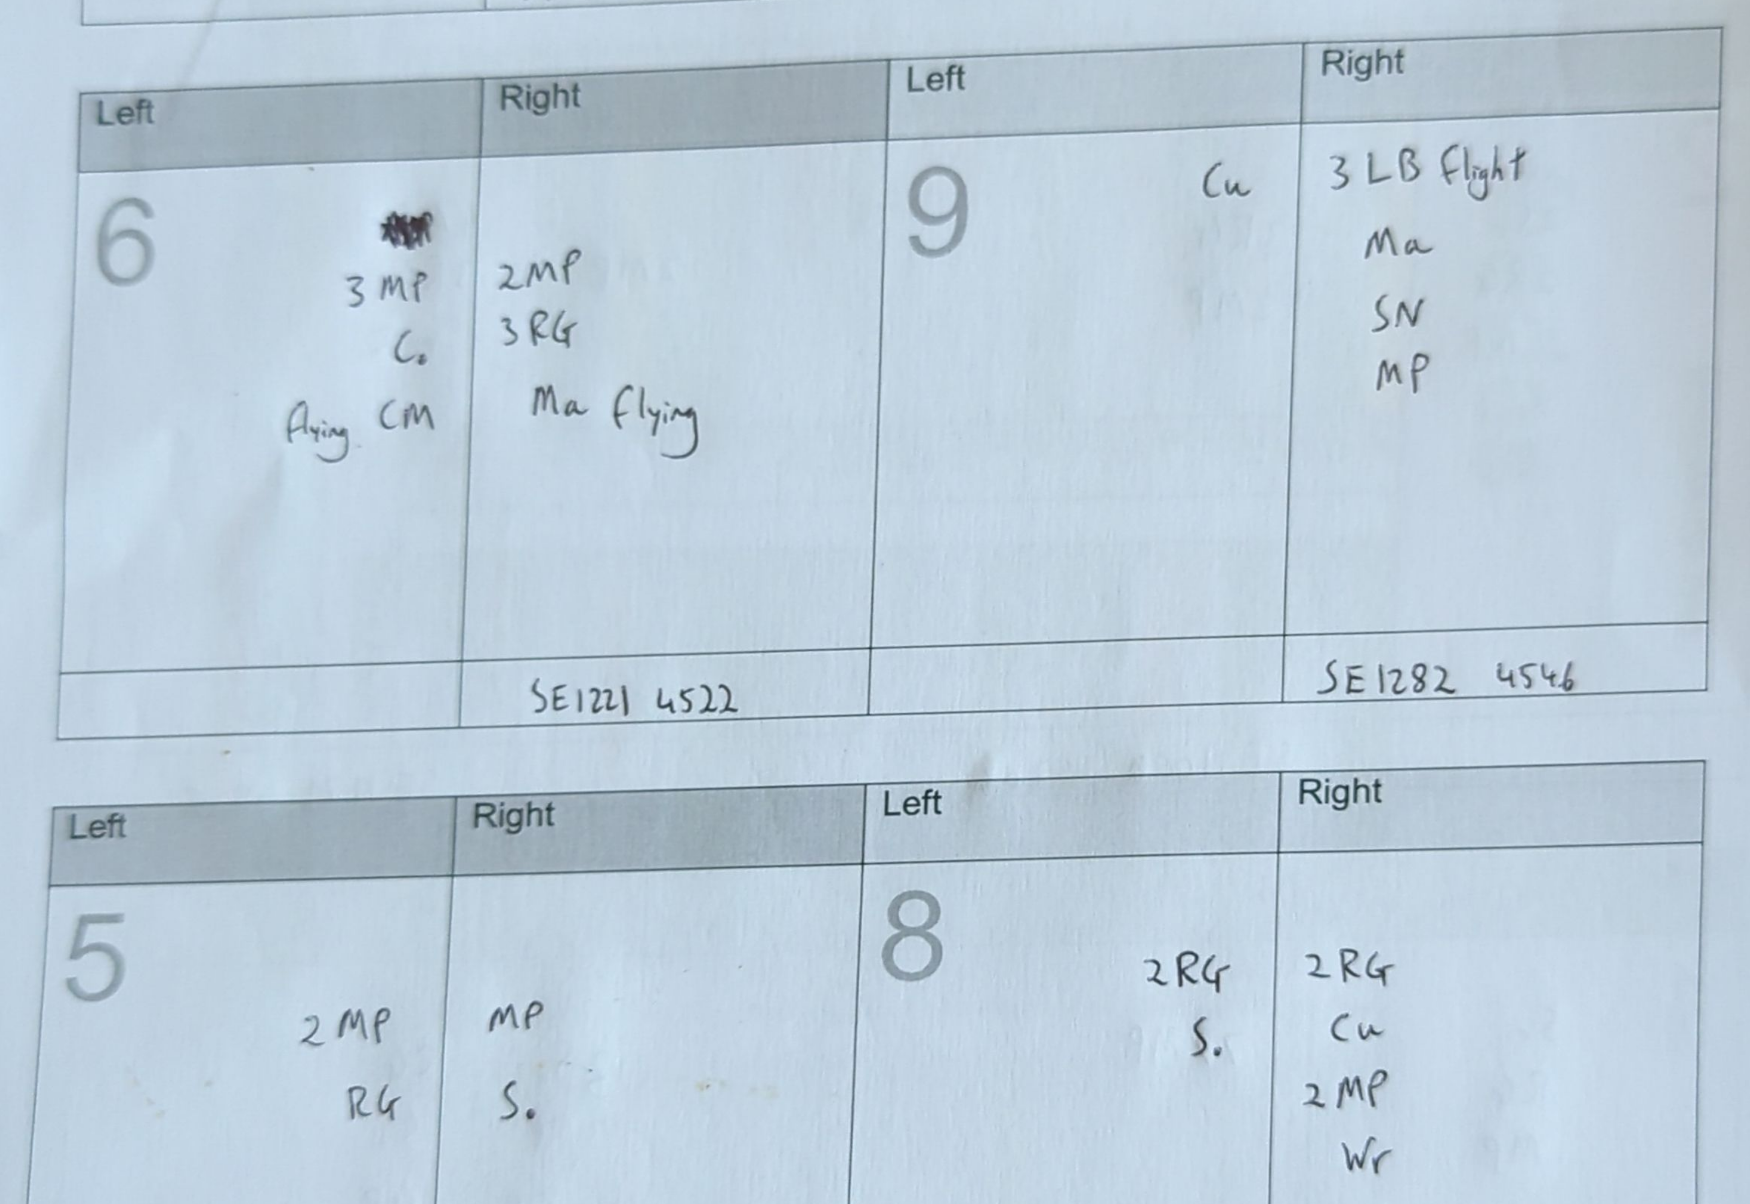 Left
Right
Left
Right
6
3 MP
C.
flying CM
2 MP
3 RG
Ma flying
9
Cu
3 LB flight
Ma
SN
MP
SE1221 4522
SE1282 4546
Left
Right
Left
Right
5
2 MP
RG
MP
S.
8
2 RG
S.
2 RG
Cu
2 MP
Wr